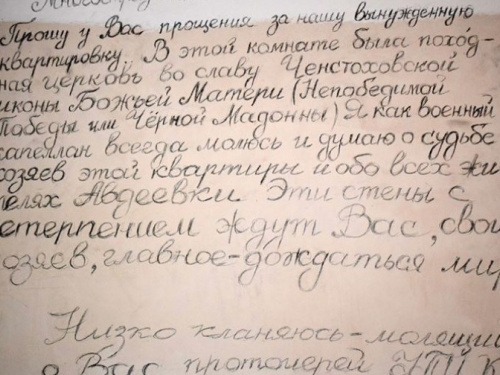 Прошу у Вас прощения за нашу вынужденную
квартировку. В этой комнате была поход-
ная церковь во славу Ченстоховской
иконы Божьей Матери (Непобедимой
Победы или Чёрной Мадонны) Я как военный
капеллан всегда молюсь и думаю о судьбе
хозяев этой квартиры и обо всех жи
телях Авдеевки. Эти стены с
нетерпением ждут Вас, свои
хозяев, главное-дождаться ми
Низко кланяюсь-молящи
о Вас протоиерей